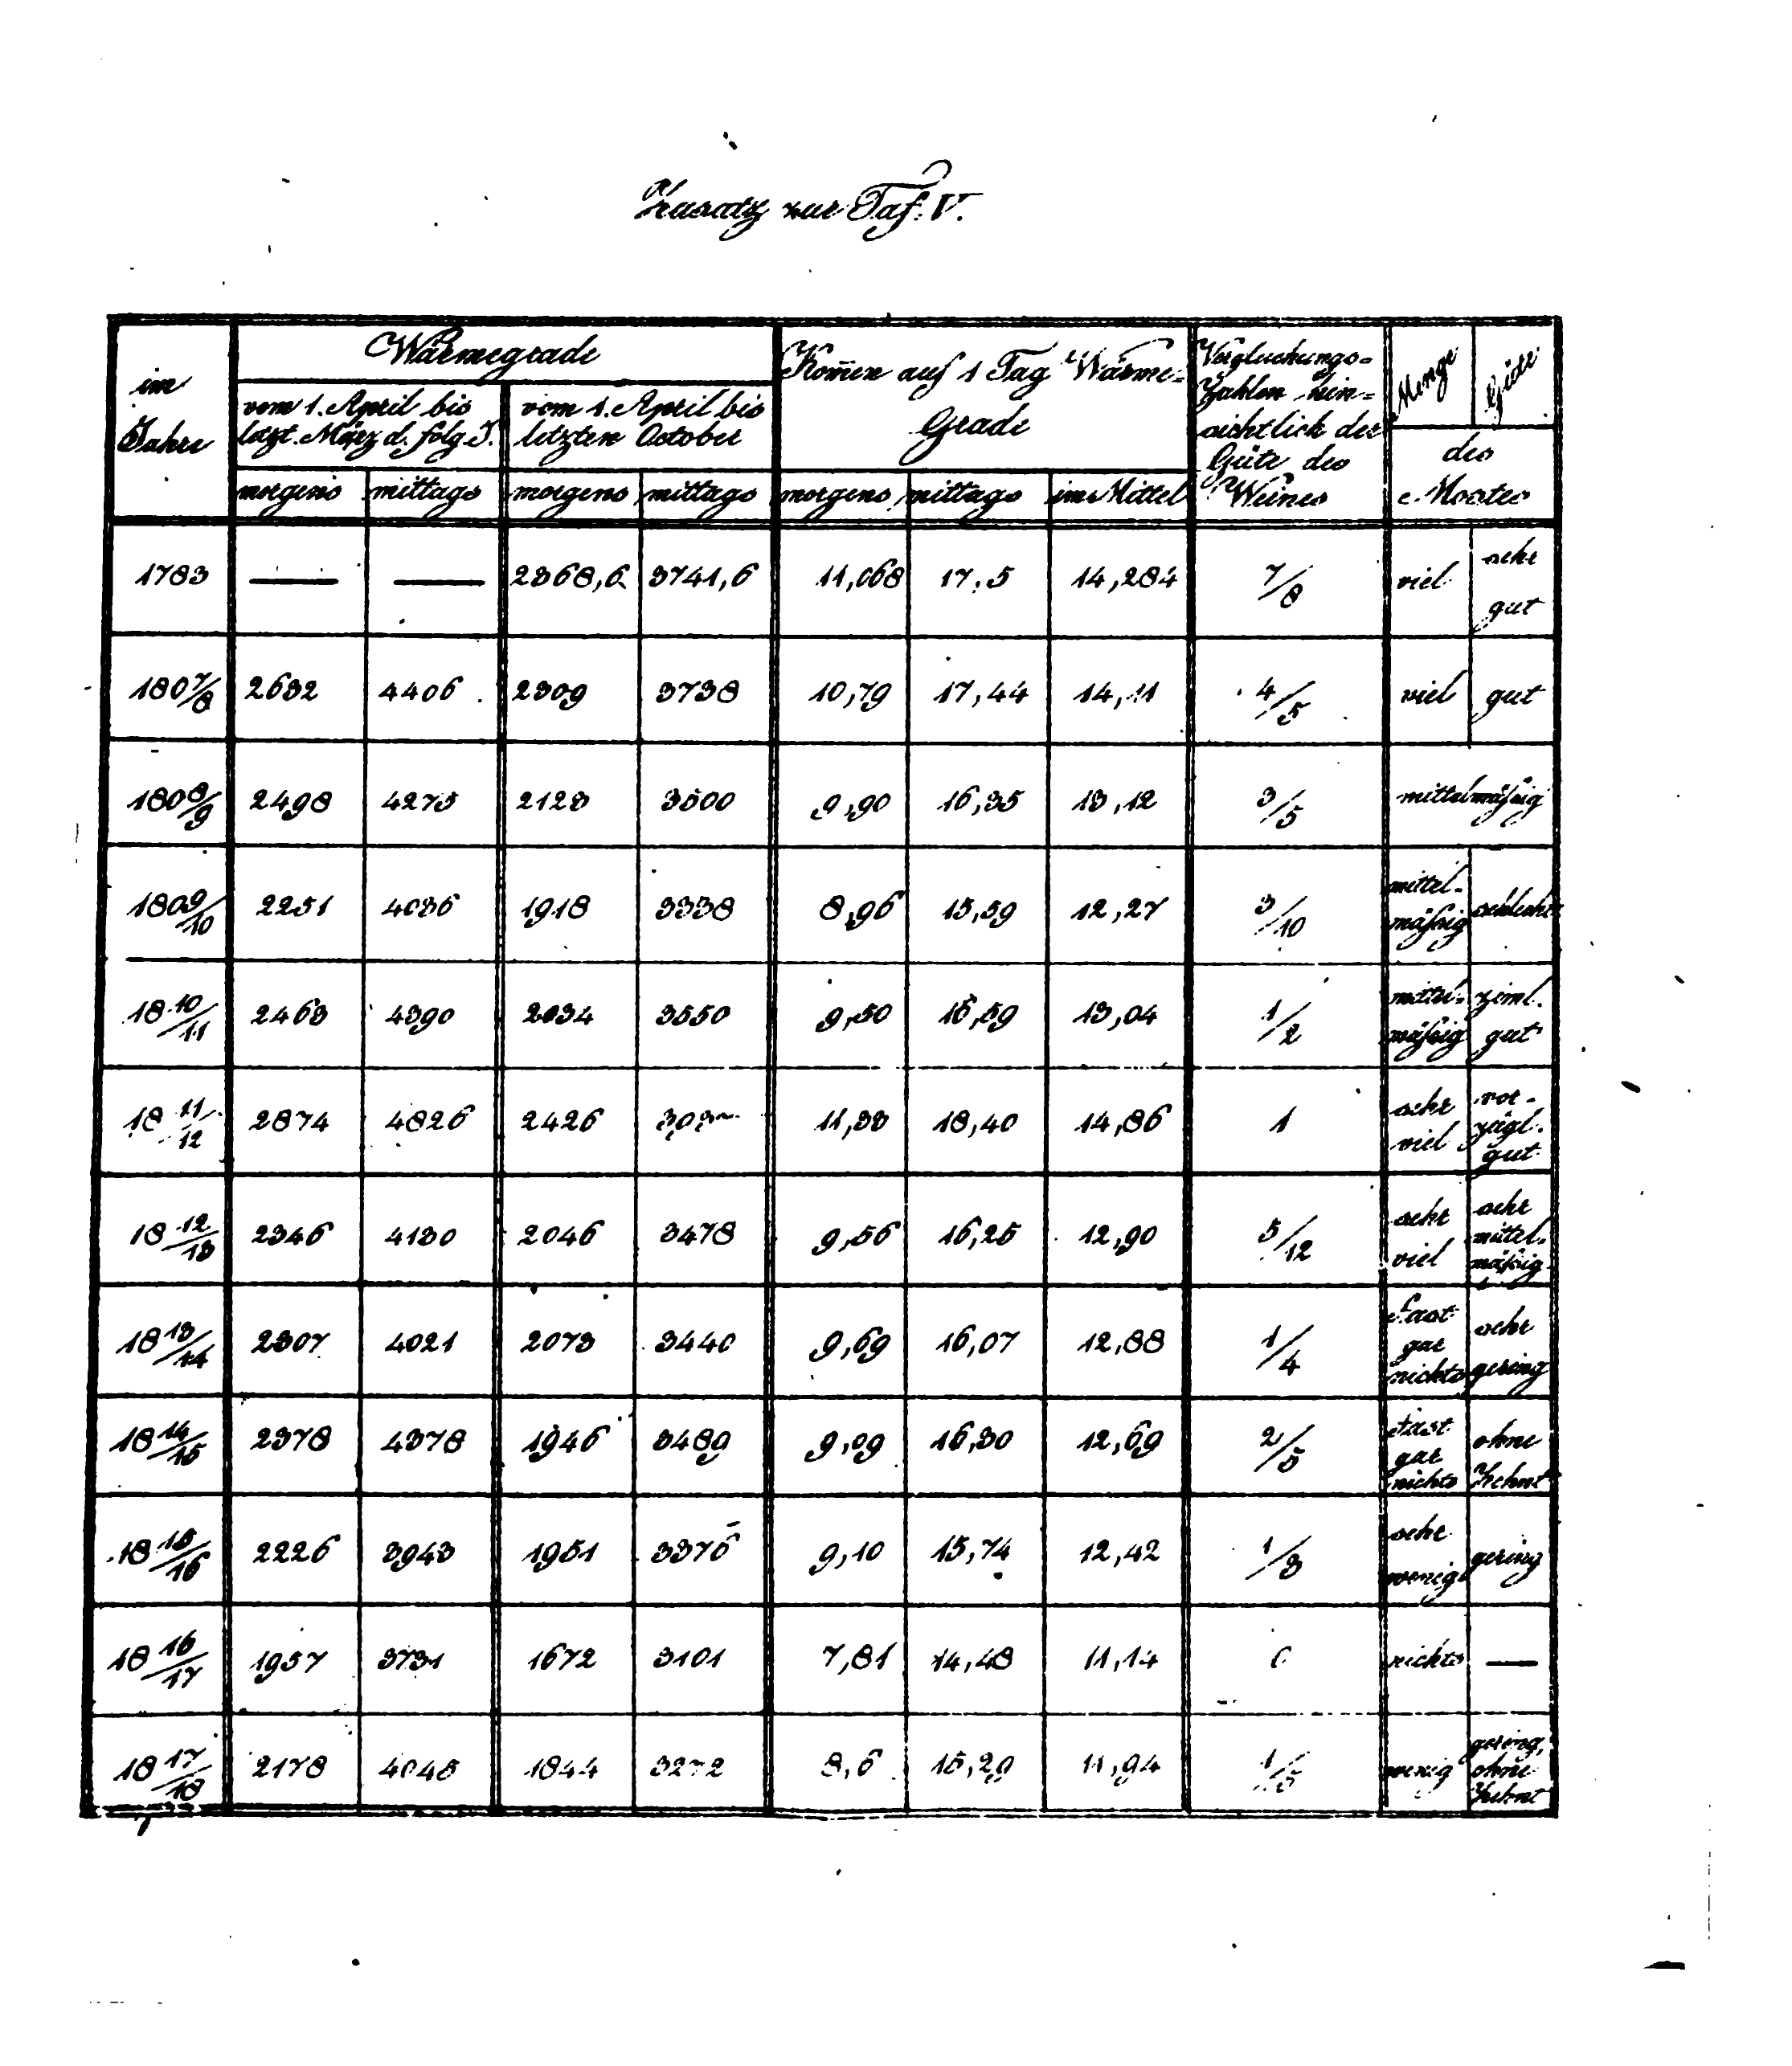 Zusatz zur Taf. V.
im Jahre
Wärmegrade
vom 1. April bis
letzt. März d. folg. J.
vom 1. April bis
letzten October
Kom̄en auf 1 Tag Wärme-
Grade
Vergleichungs-
Zahlen hin-
sichtlich der
Güte des
Weines
Menge Güte
des
Mostes
morgens mittags morgens mittags morgens mittags im Mittel
1783 — — 2368,6 3741,6 11,068 17,5 14,284 7/8 viel sehr gut
1807/8 2632 4406 2309 3738 10,79 17,44 14,11 4/5 viel gut
1808/9 2498 4275 2123 3500 9,90 16,35 13,12 3/5 mittelmäßig
1809/10 2251 4036 1918 3338 8,96 15,59 12,27 3/10 mittel-mäßig schlecht
18 10/11 2463 4390 2034 3550 9,50 16,59 13,04 1/2 mittel-mäßig ziml. gut
18 11/12 2874 4826 2426 11,33 18,40 14,86 1 sehr viel vor-zügl. gut
18 12/13 2346 4130 2046 3478 9,56 16,25 12,90 5/12 sehr viel sehr mittel-mäßig
18 13/14 2307 4021 2073 3440 9,69 16,07 12,88 1/4 Fast gar nichts sehr gering
18 14/15 2378 4378 1946 3489 9,09 16,30 12,69 2/5 Fast gar nichts ohne Zehnt
18 15/16 2226 3943 1951 3376 9,10 15,74 12,42 1/3 sehr wenig gering
18 16/17 1957 3731 1672 3101 7,81 14,48 11,14 0 nichts —
18 17/18 2178 4045 1844 3272 8,6 15,29 11,94 1/5 wenig gering, ohne Zehnt